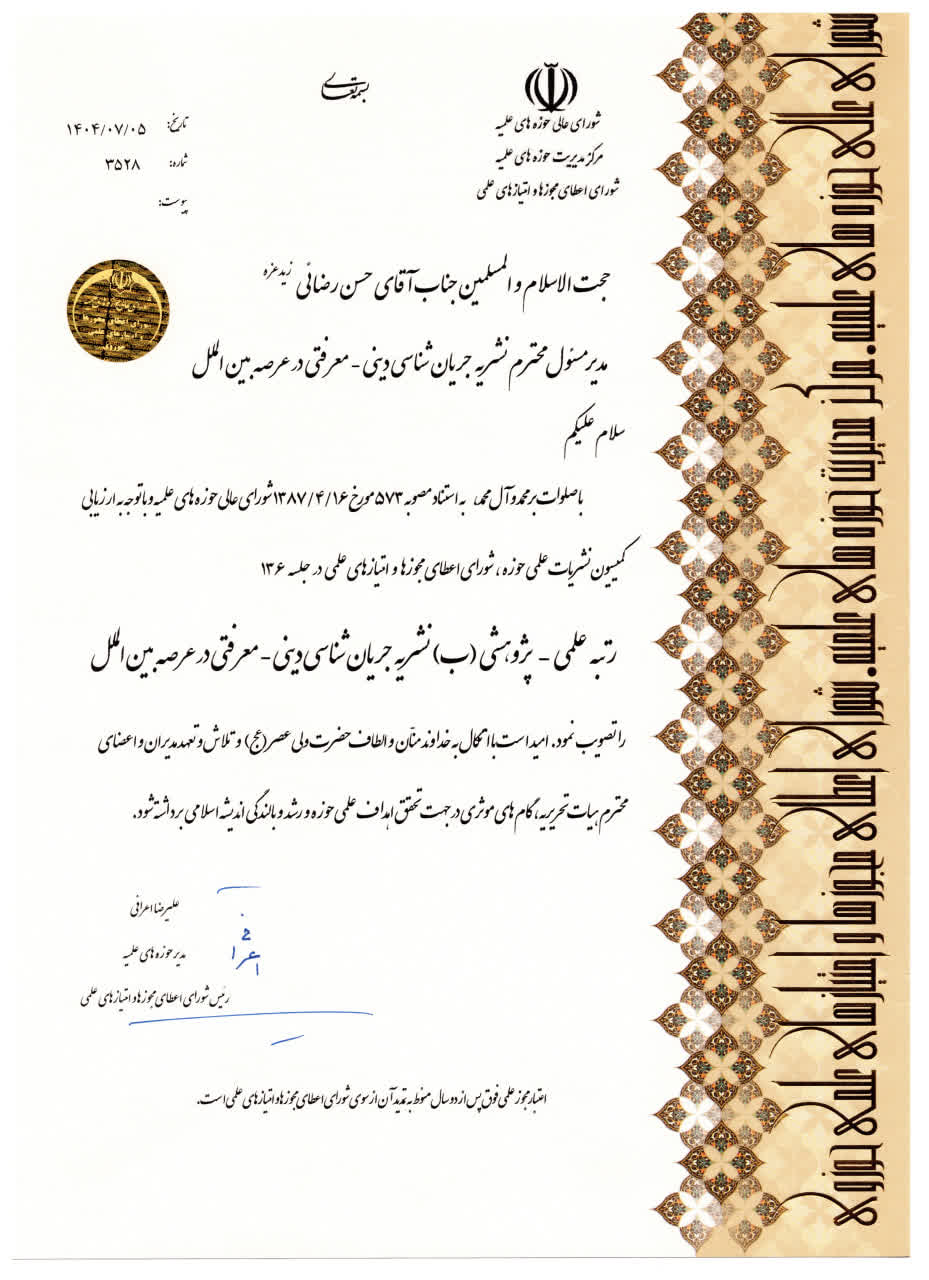 بسمه تعالی
شورای عالی حوزه های علمیه
مرکز مدیریت حوزه های علمیه
شورای اعطای مجوزها و امتیازهای علمی
تاریخ: ۱۴۰۴/۰۷/۰۵
شماره: ۳۵۲۸
پیوست:
حجت الاسلام و المسلمین جناب آقای حسن رضائی زید عزه
مدیر مسئول محترم نشریه جریان شناسی دینی - معرفتی در عرصه بین الملل
سلام علیکم
با صلوات بر محمد و آل محمد، به استناد مصوبه ۵۷۳ مورخ ۱۳۸۷/۴/۱۶ شورای عالی حوزه های علمیه و با توجه به ارزیابی
کمیسیون نشریات علمی حوزه، شورای اعطای مجوزها و امتیازهای علمی در جلسه ۱۳۶
رتبه علمی - پژوهشی (ب) نشریه جریان شناسی دینی - معرفتی در عرصه بین الملل
را تصویب نمود. امید است با اتکال به خداوند منّان و الطاف حضرت ولی عصر (عج) و تلاش و تعهد مدیران و اعضای
محترم هیات تحریریه، گام های موثری در جهت تحقق اهداف علمی حوزه و رشد و بالندگی اندیشه اسلامی برداشته شود.
علیرضا اعرافی
مدیر حوزه های علمیه
رئیس شورای اعطای مجوزها و امتیازهای علمی
اعتبار مجوز علمی فوق پس از دو سال منوط به تمدید آن از سوی شورای اعطای مجوزها و امتیازهای علمی است.
شورای عالی حوزه های علمیه. مرکز مدیریت حوزه های علمیه. شورای اعطای مجوزها و امتیازهای علمی حوزوی